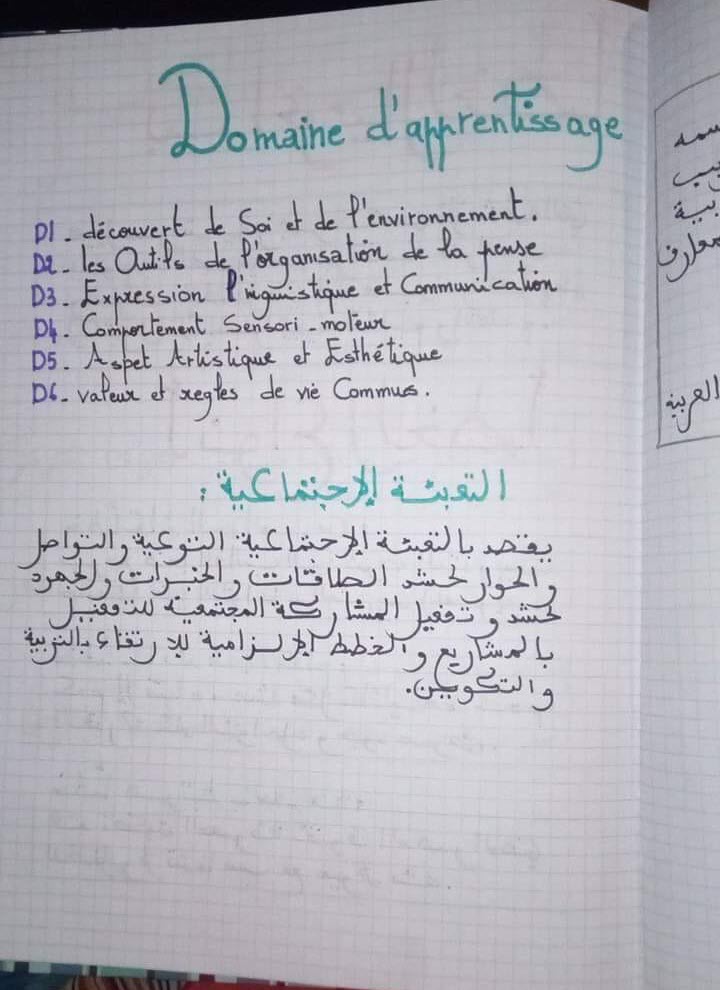 Domaine d'apprentissage
D1 - découvert de Soi et de l'environnement.
D2 - les Outils de l'organisation de la pense
D3 - Expression l'niguistique et Communication
D4 - Comportement Sensori-moteur
D5 - Aspet Artistique et Esthétique
D6 - valeur et regles de vie Commus.
التعبئة الإجتماعية :
يقصد بالتعبئة الإجتماعية التوعية والتواصل
والحوار لحشد الطاقات والخبرات والجهود
لحشد وتفعيل المشاركة المجتمعية
بالمشاريع والخطط الإلزامية للإرتقاء بالتربية
والتكوين.
سمه
بية
معارف
العربية